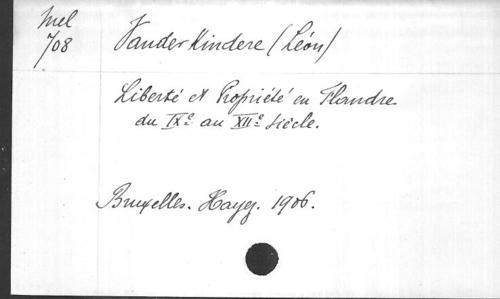 Mel
708
Vander Kindere (Léon)
Liberté et Propriété en Flandre
du IXe au XIIe siècle.
Bruxelles. Hayez. 1906.